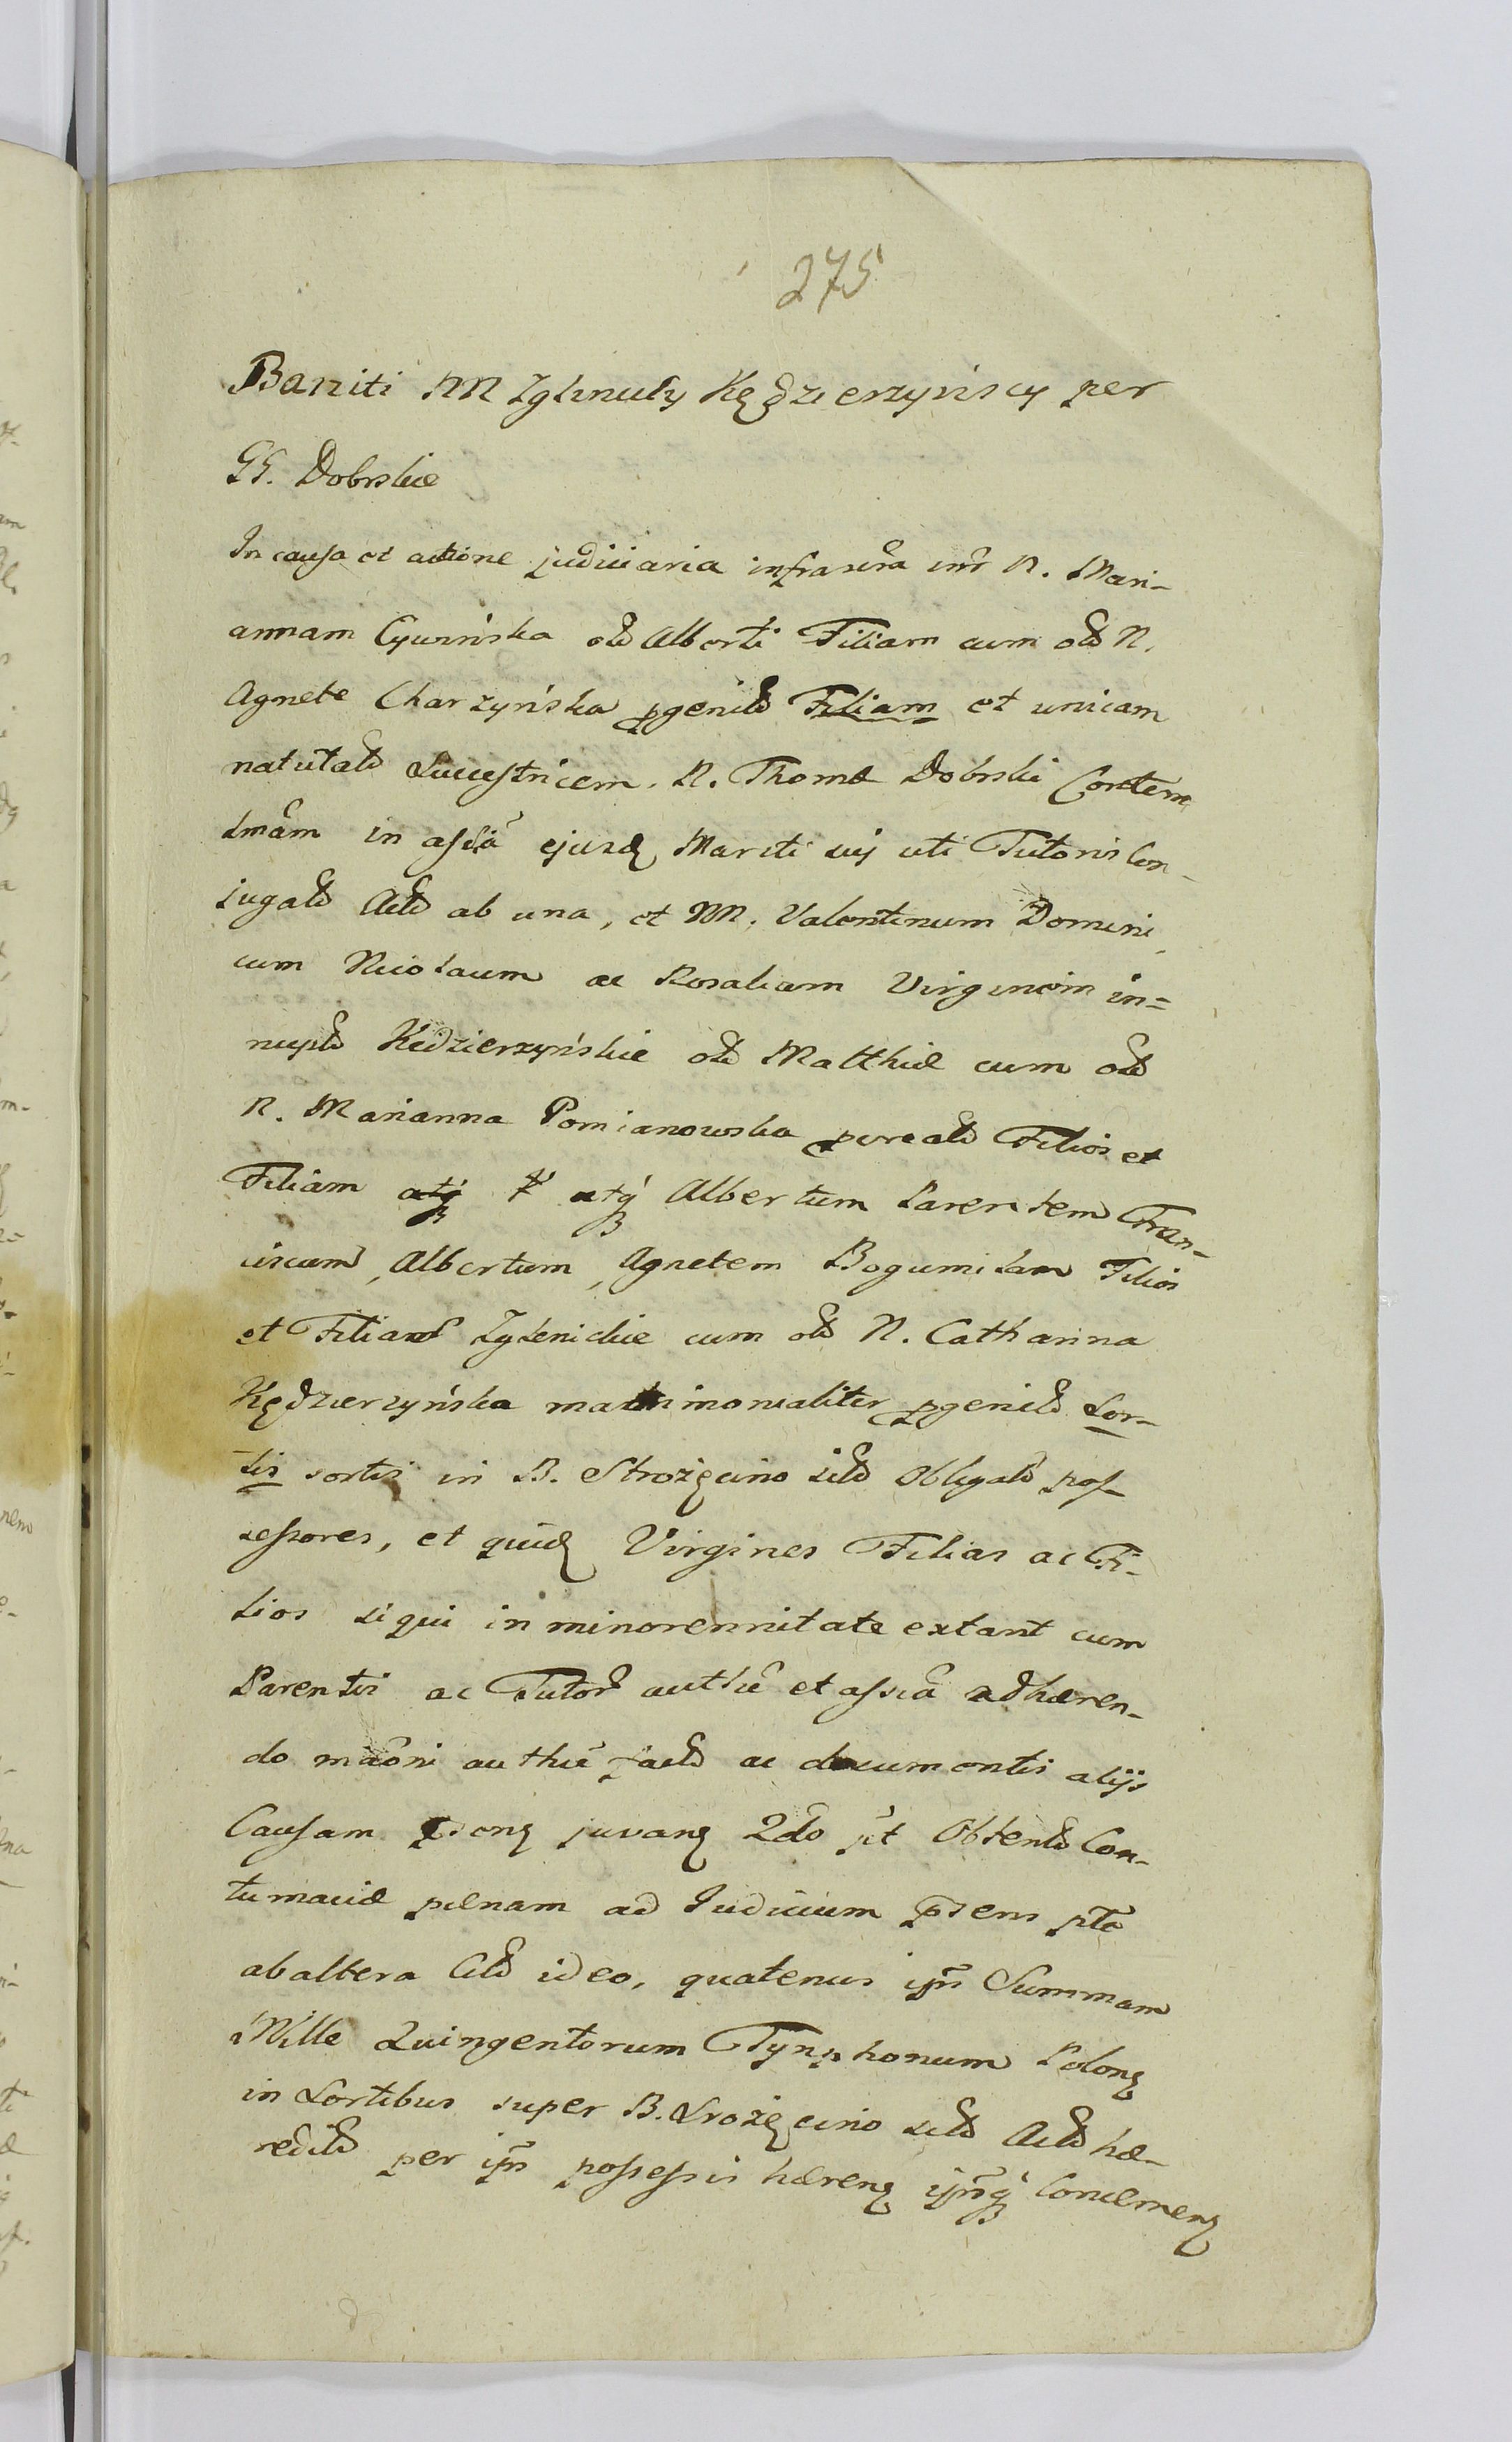 275
Baniti NN Zglinuty Kędzierzyńscy per
GG. Dobrskie
In causa et actione judiciaria infrascra intr N. Mari-
annam Cywińska olð Alberti Filiam cum olð N.
Agnete Charzyńska pgenitð Filiam et unicam
natutalð Sucestricem. N. Thomæ Dobrski Contem
lmãm in assa ejusdę Mariti sui uti Tutoris Con-
jugalð Actð ab una, et NN. Valentinum Domini
cum Nicolaum ac Rosaliam Virginem in=
nuptð Kedzierzyńskie olð Matthiæ cum olð
N. Marianna Pomianowska pcreatð Filios et
Filiam atq atq Albertum Parentem Fran-
ciscum, Albertum, Agnetem Bogumilam Filios
et Filiam Zglenickie cum olð N. Catharina
Kędzierzyńska matrimonialiter pgenitð Sor-
tis sortis in B. Strożęcino sitð Obligatð pos-
sessores, et quidę Virgines Filias ac Fi-
lios si qui in minorennitate extant cum
Parentis ac Tutorð authe et assa adhæren-
do mãoni authe factð ac documentis alijs
Causam psenę juvanę 2do pt Obtentð Con-
tumaciæ pænam ad Judicium psens pte
ab altera Citð ideo, quatenus ipsi Summam
Mille Quingentorum Tynphonum Polonę
in Sortibus super B. Srożęcino sitð Actð hæ-
reditð per ipsi possessis hærenę ipsiq Concernenę